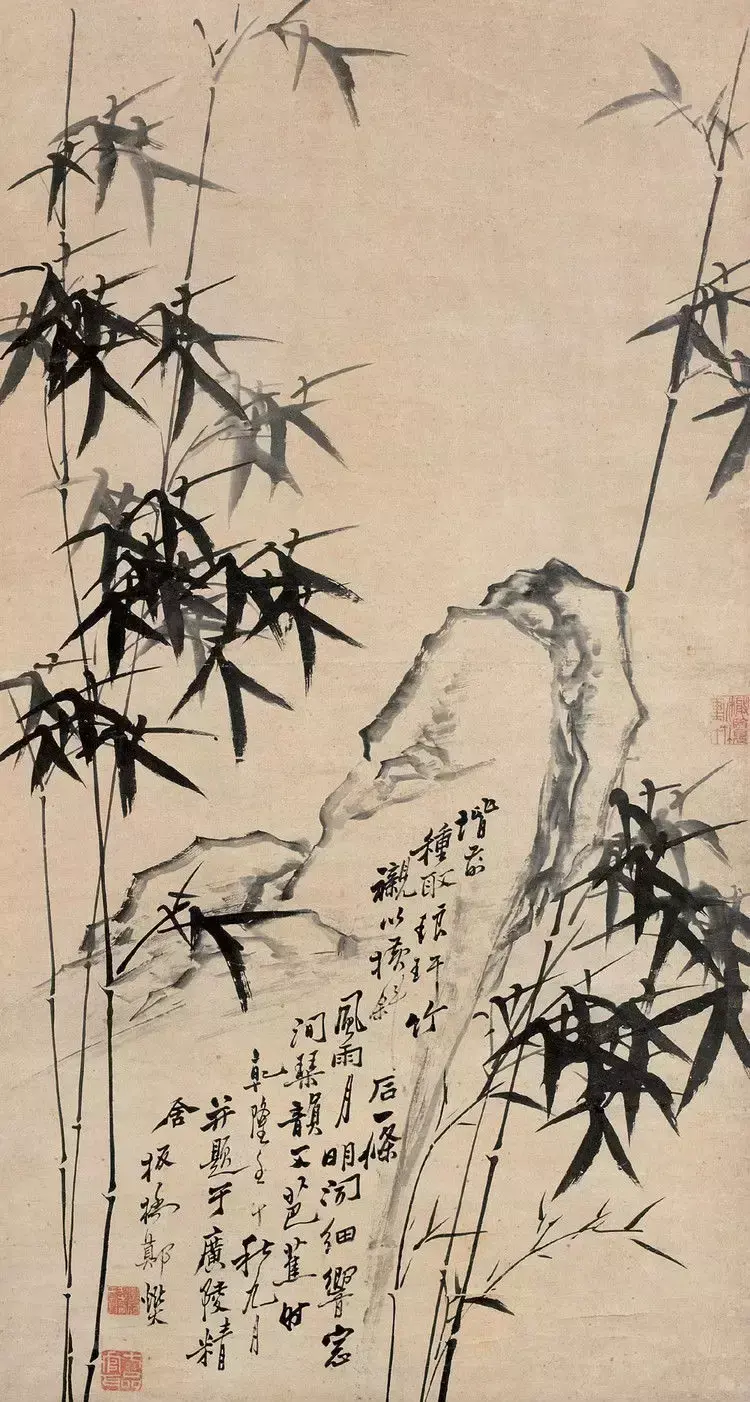 堦前
種取琅玕竹
襯以橫斜
石一條
風雨月明聞細響窓
間琴韻芭蕉時
乾隆壬午秋九月
并題于廣陵精
舍
板橋鄭燮